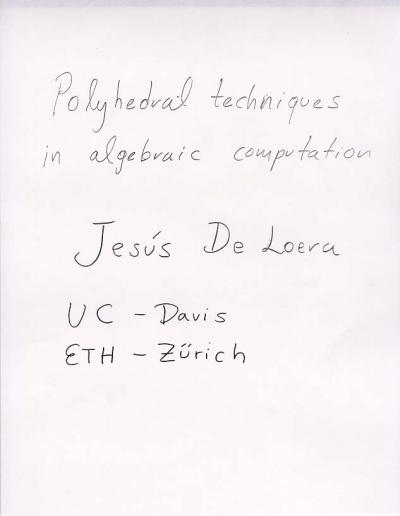 Polyhedral techniques
in algebraic computation
Jesús De Loera
UC - Davis
ETH - Zürich